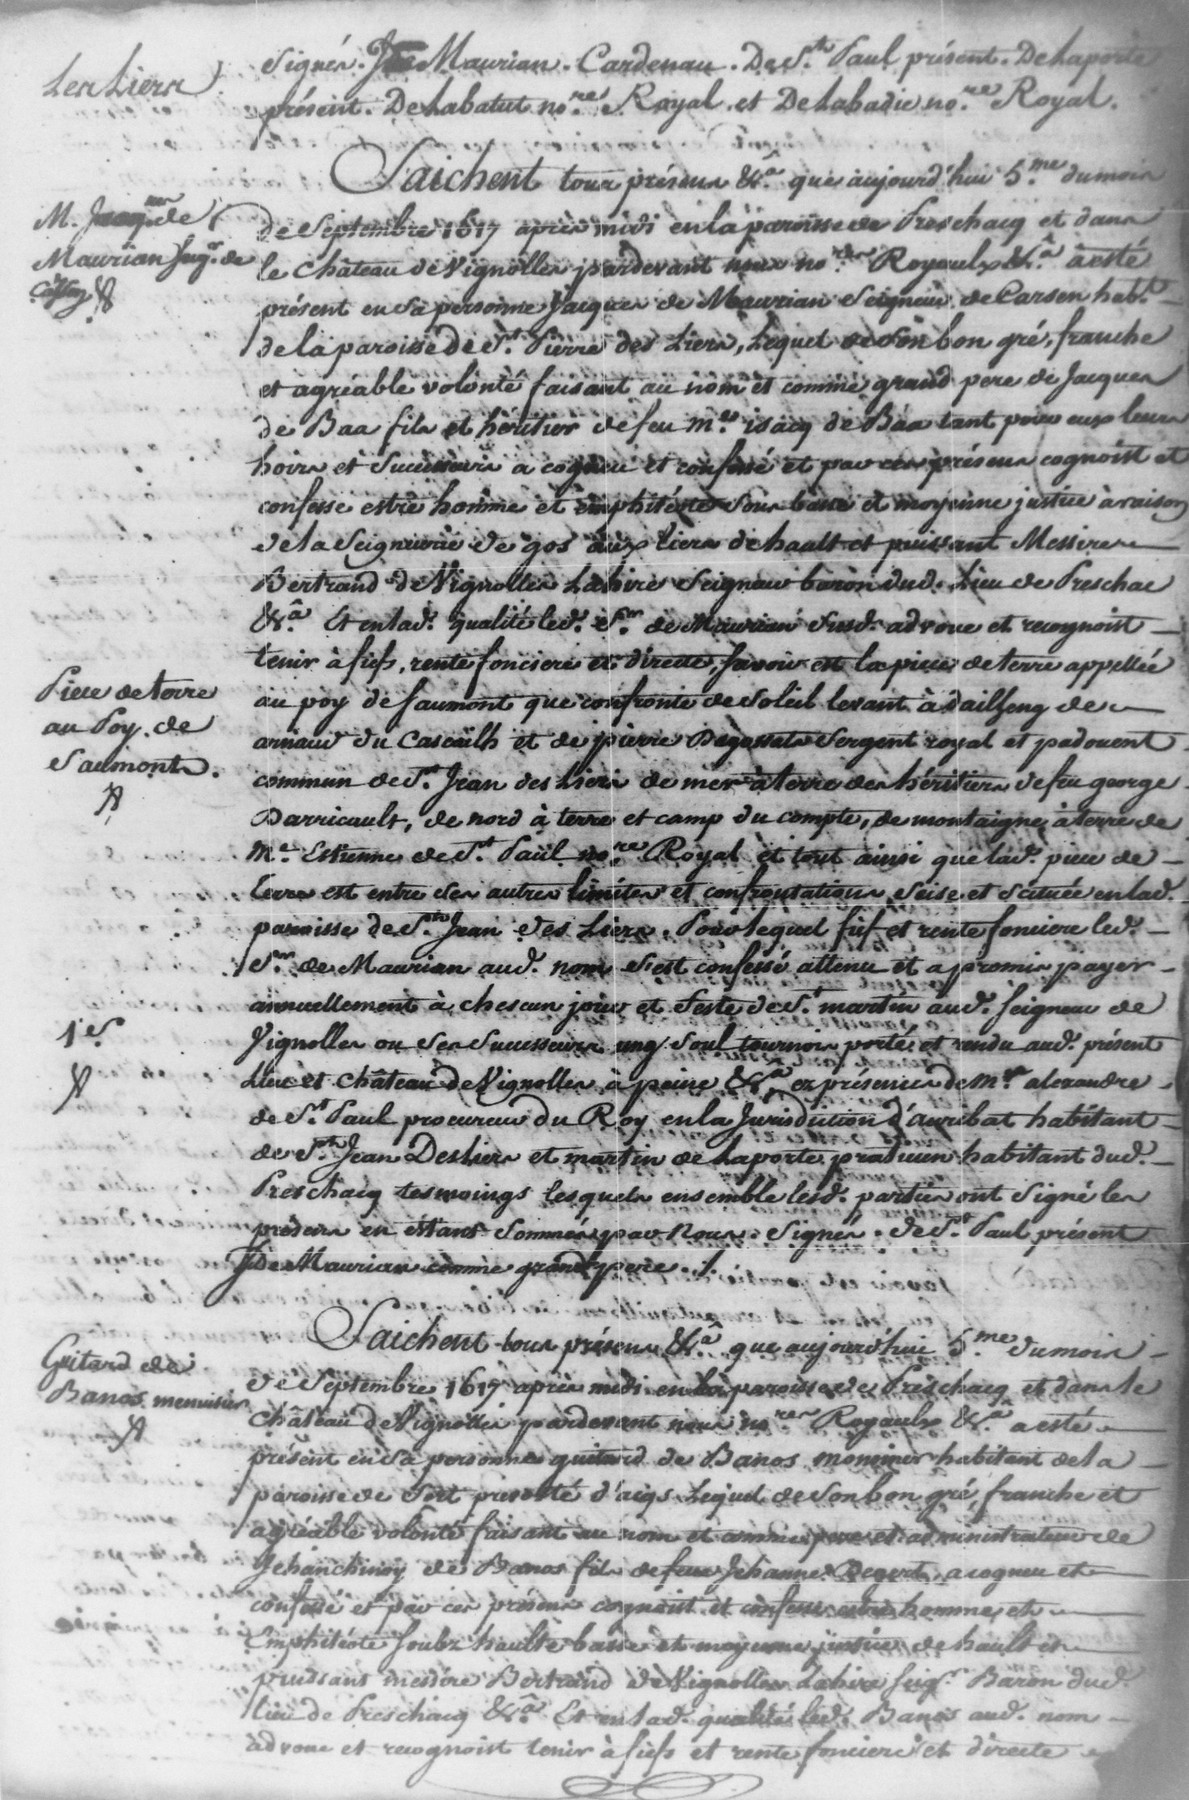 Les Liers
Signés. J. De Maurian. Cardenau. De St. Paul présent. De Laporte
présent. De Labatut nore. Royal. et De Labadie nore. Royal.
Saichent tous présens &a. que aujourd'hui 5.me du mois
M. Jacq. de
Maurian Seigr. de
de Septembre 1617 après midi en la paroisse de Preschacq et dans
le Château de Vignolles pardevant nous nores. Royaulx &a. à esté
présent en sa personne Jacques de Maurian Seigneur de Carsen habt.
de la paroisse de St. Pierre des Liers, Lequel de son bon gré, franche
et agréable volonté faisant au nom et comme grand pere de Jacques
de Baa fils et héritier de feu me. isacq de Baa tant pour eux leurs
hoirs et Successeurs a cogneu et confessé et par ces présens cognoist et
confesse estre homme et emphitéote sous basse et moyenne justice à raison
de la Seigneurie de gos aux liers de hault et puissant Messire
Bertrand de Vignolles Lahire Seigneur baron dud. Lieu de Preschac
&a. Et en lad. qualité led. Sr. de Maurian susd. advoue et recognoist
tenir à fiefs, rente fonciere et directe, savoir est la piece de terre appellée
Piece de terre
au Poy de
Saumont.
au poy de saumont que confronte de soleil levant à d'ailheng de
arnaud du Cascailh et de pierre Degossats Sergent royal et padouent
commun de St. Jean des Liers de mer à terre des héritiers de feu george
Darricault, de nord à terre et camp du compte, de montaigne à terre de
Me. Estienne de St. Paul nore. Royal et tout ainsi que lad. piece de
terre est entre ses autres limites et confrontations, Seise et Scituée en lad.
paroisse de St. Jean des Liers. Pour lequel fief et rente fonciere led.
Sr. de Maurian aud. nom s'est confessé attenu et a promis payer
annuellement à chescun jour et feste de St. martin aud. seigneur de
1 s.
Vignolles ou ses Successeurs ung soul tournois porté et rendu aud. présent
Lieu et château de Vignolles à peine &a. ez présences de Me. alexandre
de St. Paul procureur du Roy en la Jurisdiction d'auribat habitant
de St. Jean Des Liers et martin de Laporte praticien habitant dud.
Preschacq tesmoings lesquels ensemble lesd. parties ont signé les
présens en estans sommés par nous. Signés. de St. Paul présent
J. de Maurian comme grand pere.
Saichent tous présens &a. que aujourd'hui 5.me du mois
Guitard de
Banos menuisier
de Septembre 1617 après midi en la paroisse de Preschacq et dans le
château de Vignolles pardevant nous nores. Royaulx &a. a esté
présent en sa personne guitard de Banos menuisier habitant de la
paroisse de Sort prevosté d'acqs Lequel de son bon gré, franche et
agréable volonté faisant au nom et comme pere et administrateur de
Jehanchinoy de Banos fils de feue Jehanne Degert, a cogneu et
confessé et par ces présens cognoist et confesse estre homme et
Emphitéote soubz haulte basse et moyenne justice de hault et
puissant messire Bertrand de Vignolles Lahire seigr. Baron dud.
lieu de Preschacq &a. Et en lad. qualité led. Banos aud. nom
advoue et recognoist tenir à fiefs et rente fonciere et directe